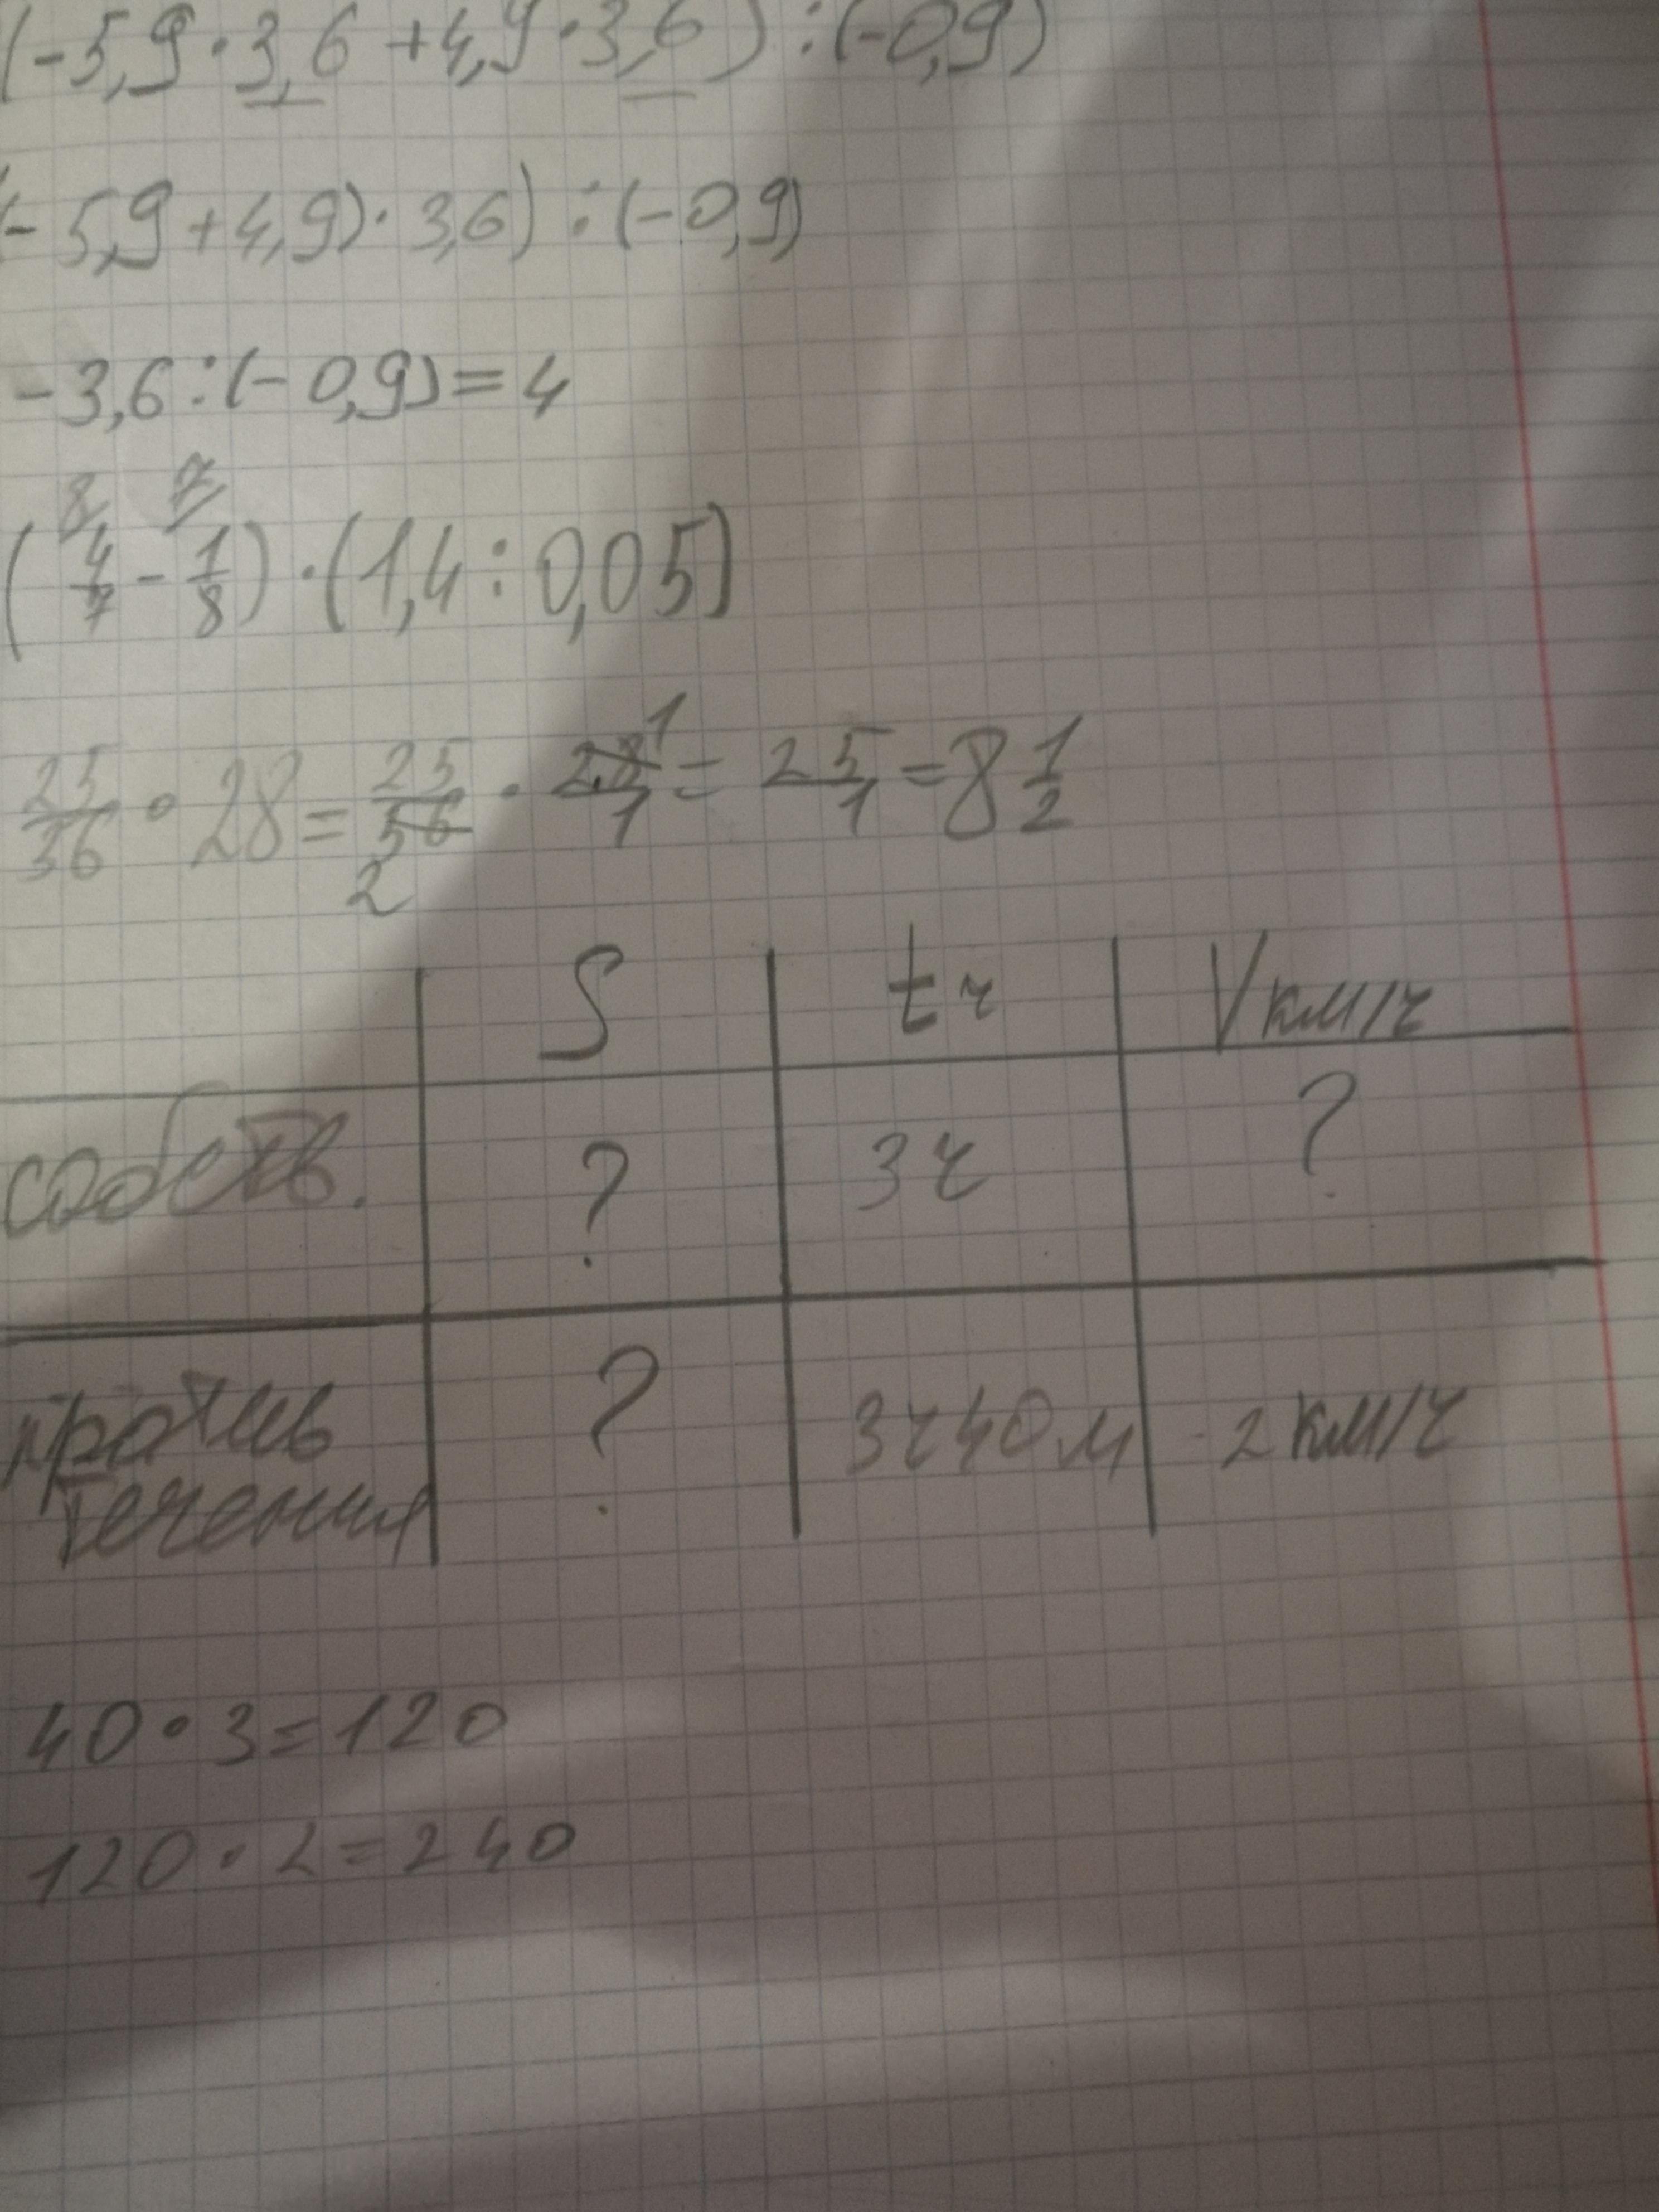 (-5,9·3,6+4,9·3,6):(-0,9)
(-5,9+4,9)·3,6):(-0,9)
-3,6:(-0,9)=4
8 7
(4/7-1/8)·(1,4:0,05)
25/36·28=25/56·28/1=25/1=8 1/2
1
2
S tч Vкм/ч
собств. ? 3ч ?
против ? 3ч40м 2км/ч
течения
40·3=120
120·2=240